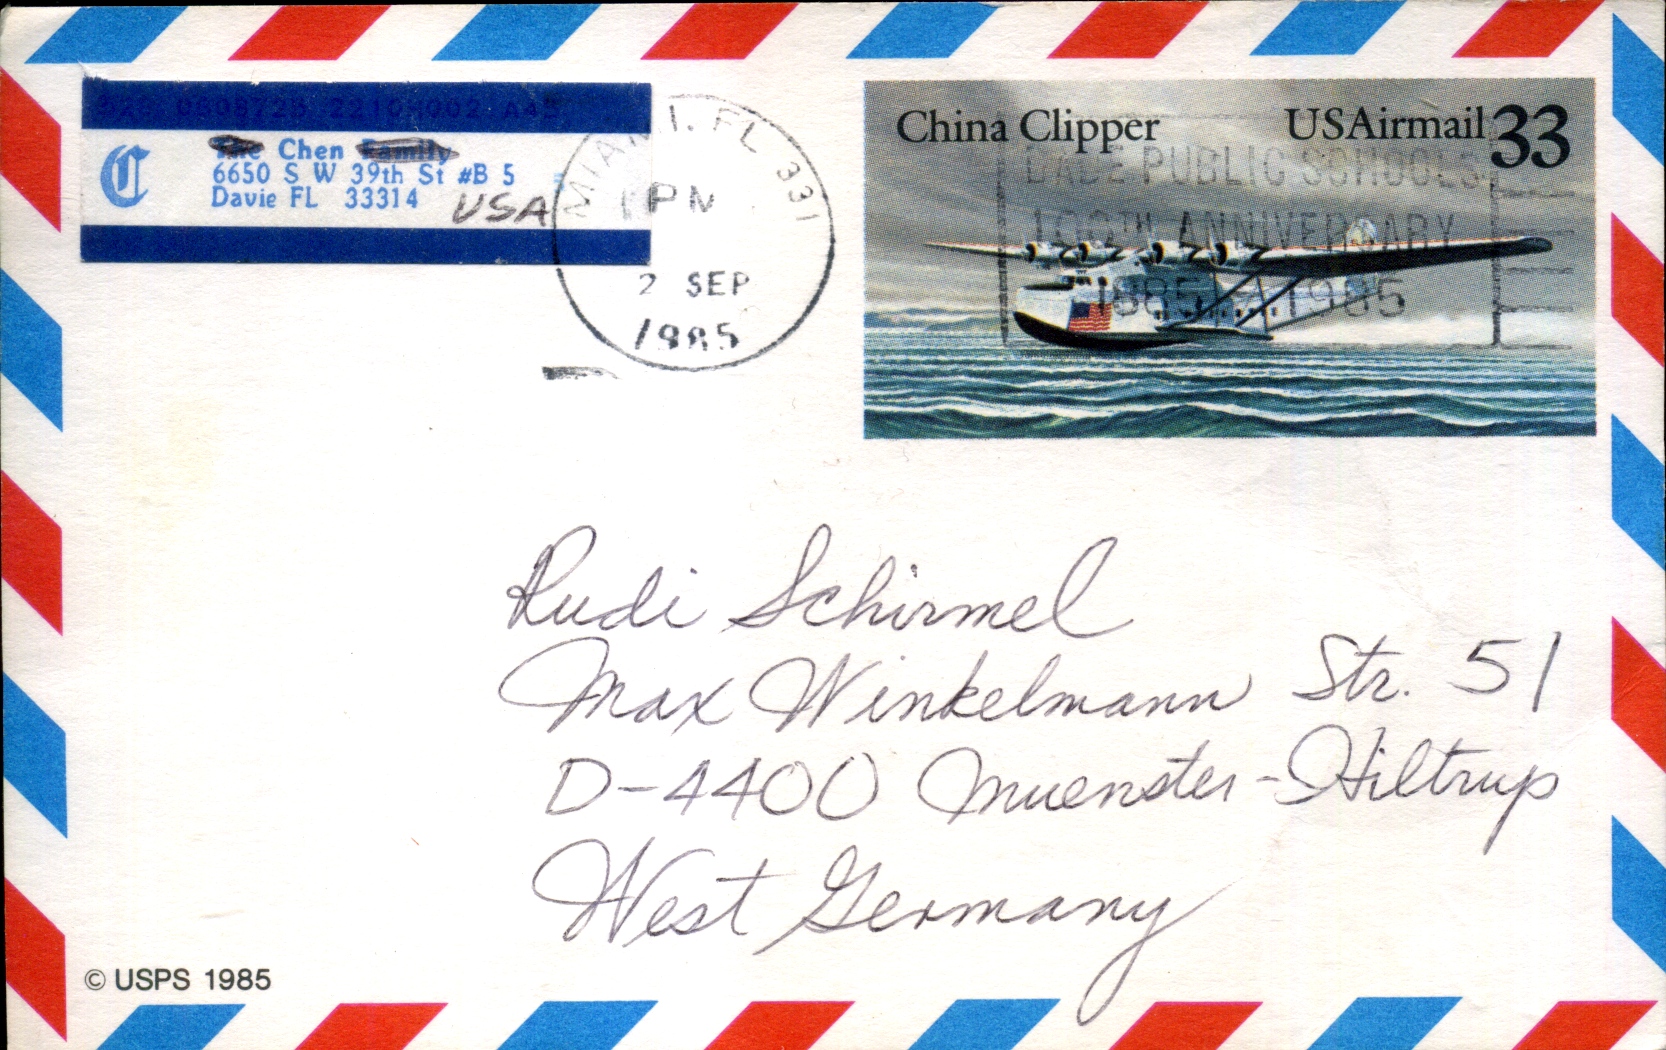 C
The Chen Family
6650 S W 39th St #B 5
Davie FL 33314 USA
MIAMI. FL 331
PM
2 SEP
1985
China Clipper USAirmail 33
DADE PUBLIC SCHOOLS
100TH ANNIVERSARY
1885 1985
Rudi Schirmel
Max Winkelmann Str. 51
D-4400 Muenster-Hiltrup
West Germany
© USPS 1985